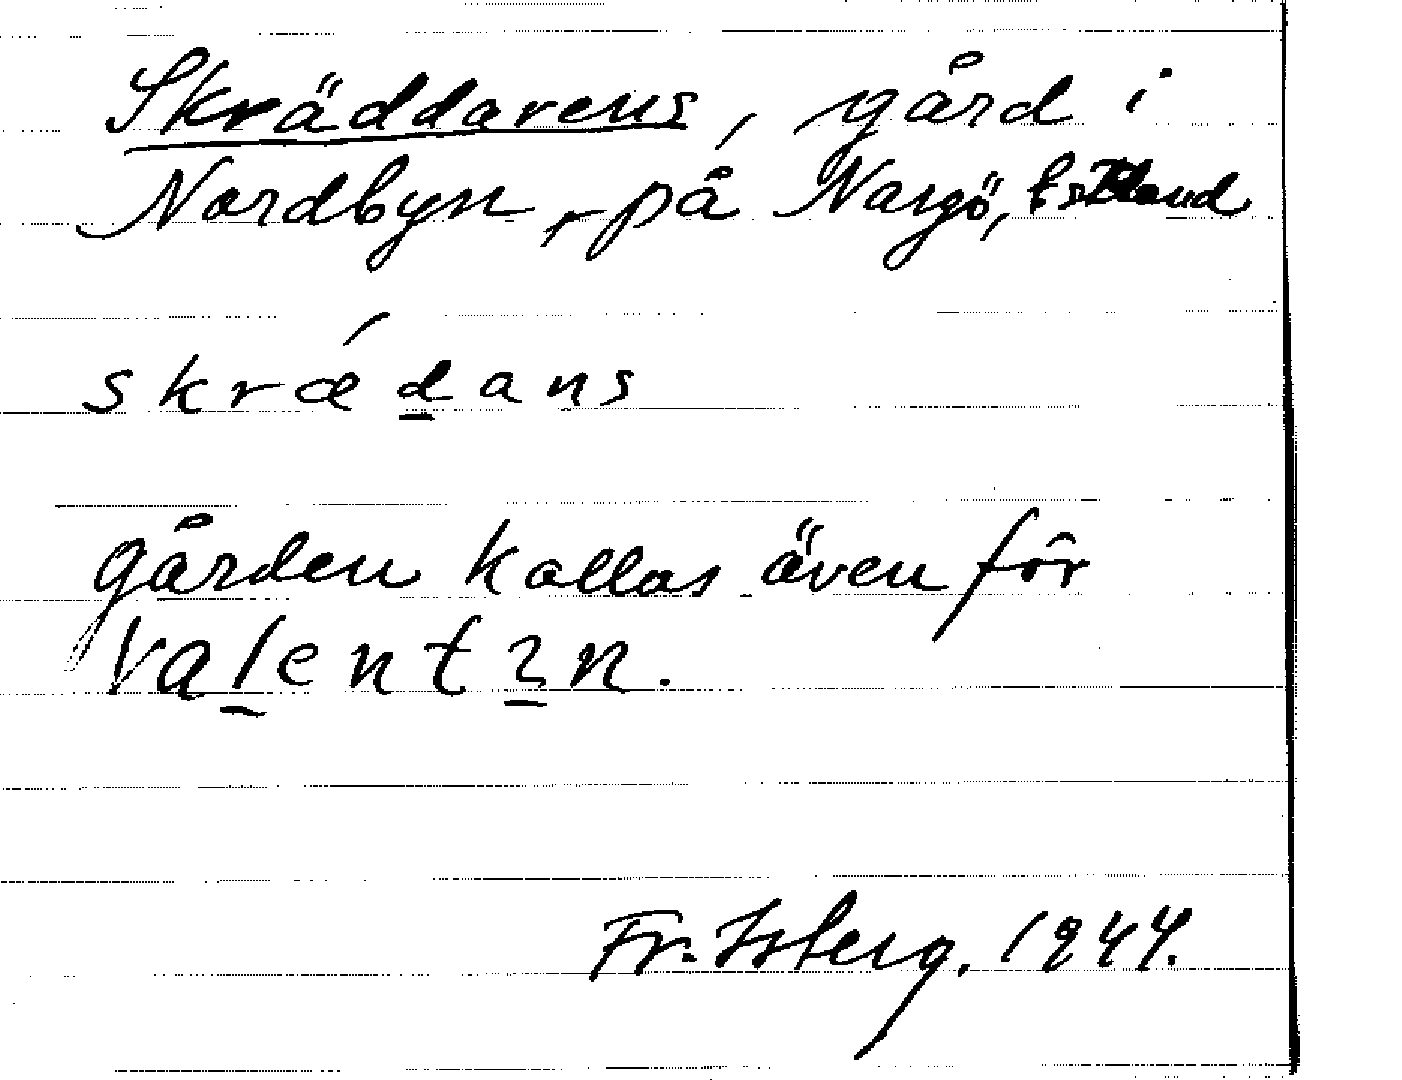 Skräddarens, gård i
Nordbyn, på Nargö, Estland
skrǽd̲ans
gården kallas även för
Val̲entı̲n.
Fr. Isberg, 1944.